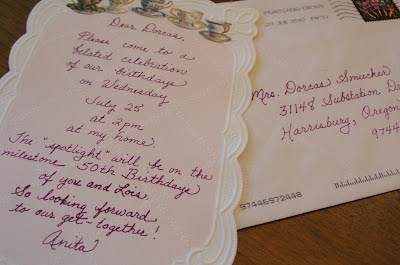 Dear Dorcas,
Please come to a
belated celebration
of our birthdays
on Wednesday
July 25
at 2pm
at my home
The "spotlight" will be on the
milestone 50th Birthdays
of you and Lois.
So looking forward
to our get-together!
Anita
PORTLAND OR 972
Mrs. Dorcas Smucker
31148 Substation D
Harrisburg, Oregon
9744
97446972448